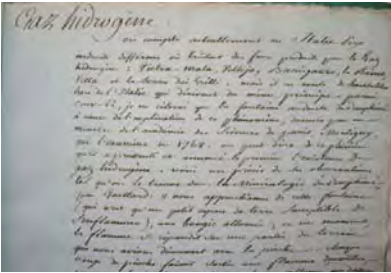 Gaz hidrogène.
on compte actuellement en Italie six
endroits différens où brûlent des feux produits par le Gaz
hidrogène : Pietra-Mala, Velleja, Barigazzo, la
Villa et la Serra dei Grilli
hors de l'Italie qui
je ne citerai que la fontaine ardente du dauphiné
à cause de l'explication de ce phénomène, donnée par un
membre de l'académie des Sciences de paris, Montigny,
qui l'examina en 1768. on peut dire de ce physicien
qu'il a pressenti et annoncé le premier l'existence du
gaz hidrogène. voici un précis de ses observations
tel qu'on le trouve dans la Minéralogie du dauphiné,
par Guettard : nous approchâmes de cette fontaine
(qui n'est qu'un petit espace de terre susceptible de
s'enflammer), une bougie allumée ; en ce moment,
la flamme se répandit sur une partie du terrain
que nous avions découvert avec la pioche. chaque
coup de pioche faisait sortir une flamme